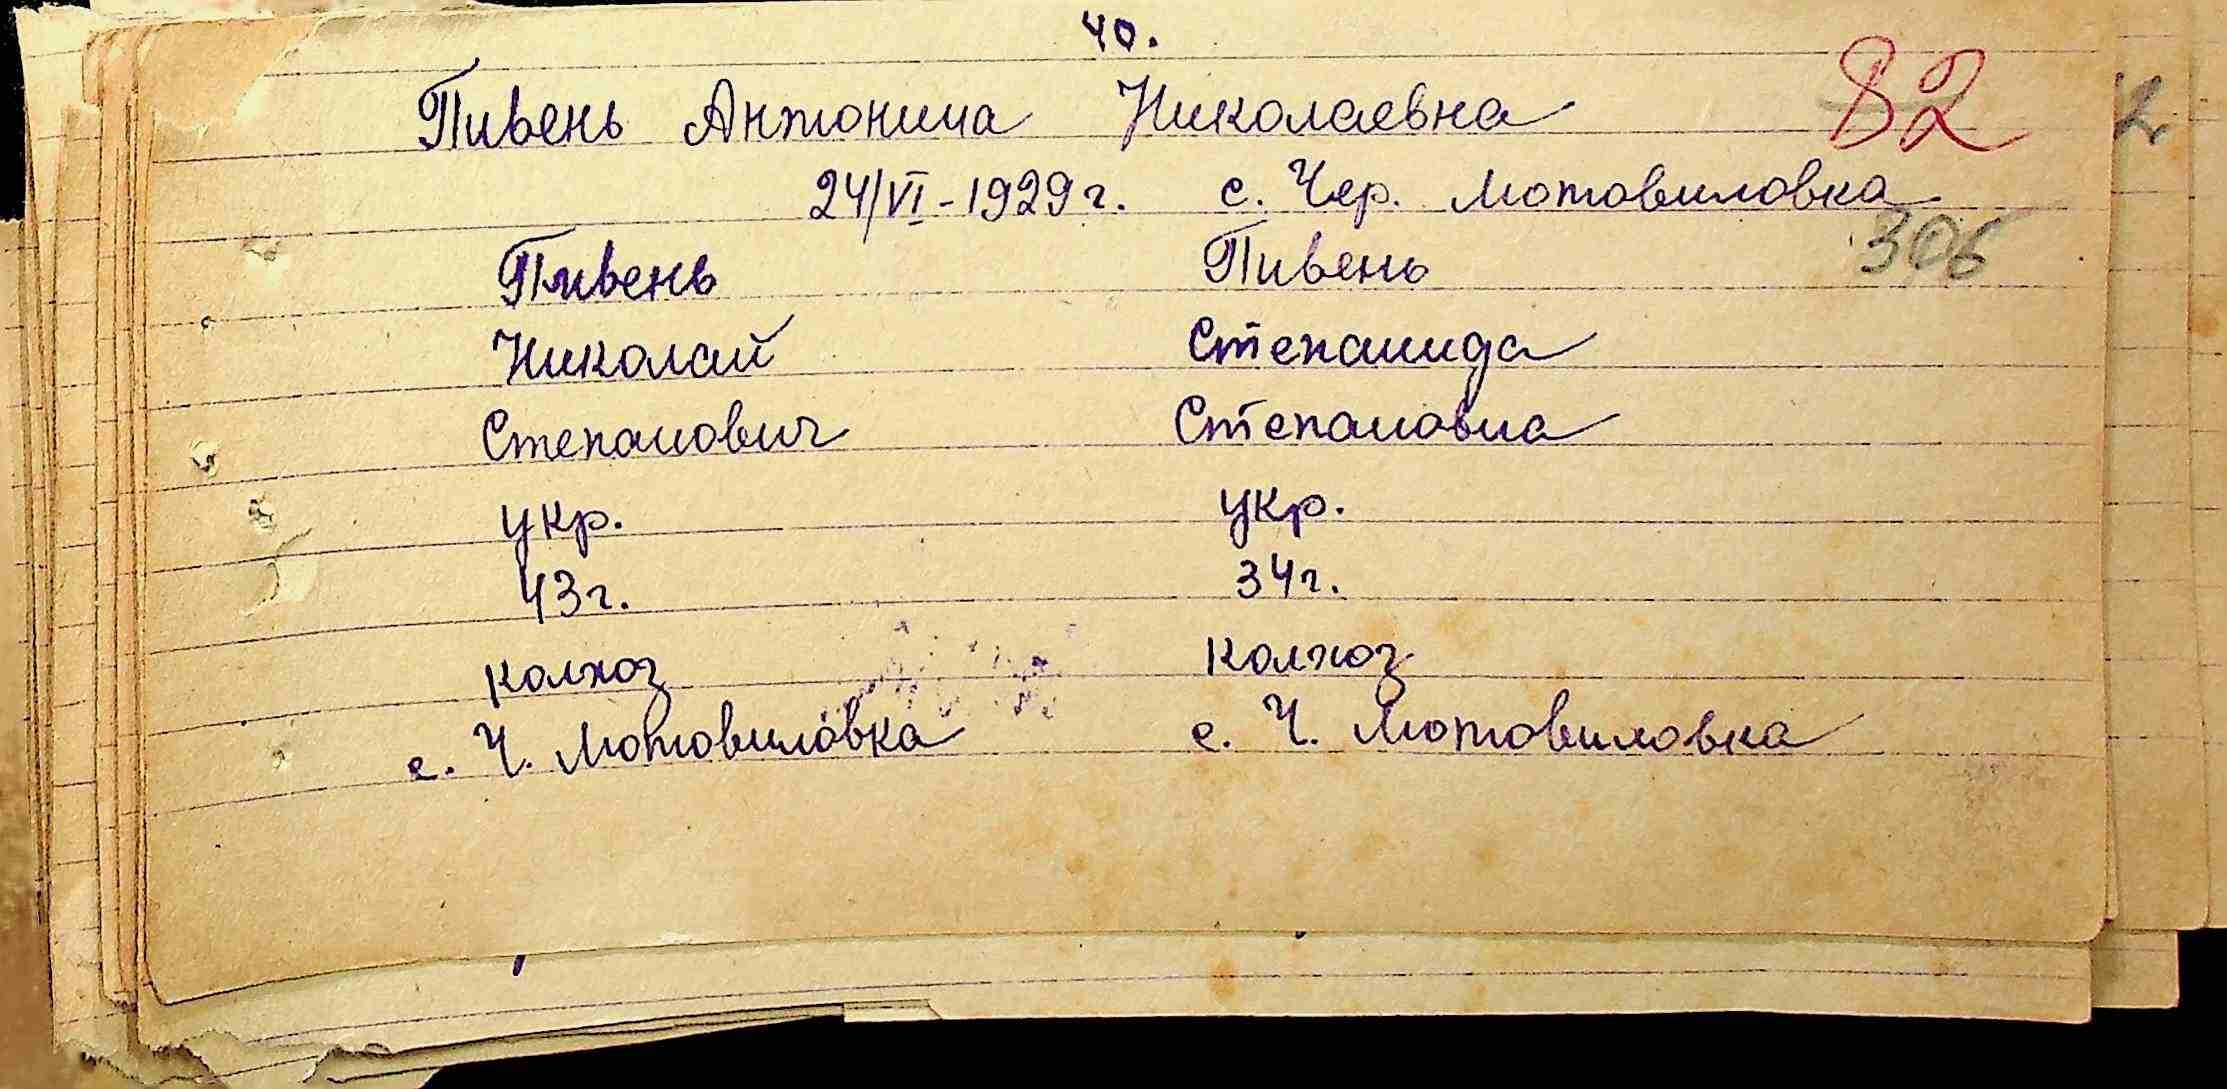 40.
Пивень Антонина Николаевна 82
24/VI-1929г. с. Чер. Мотовиловка
306
Пивень Пивень
Николай Степанида
Степанович Степановна
укр. укр.
43г. 34г.
колхоз колхоз
с. Ч. Мотовиловка с. Ч. Мотовиловка